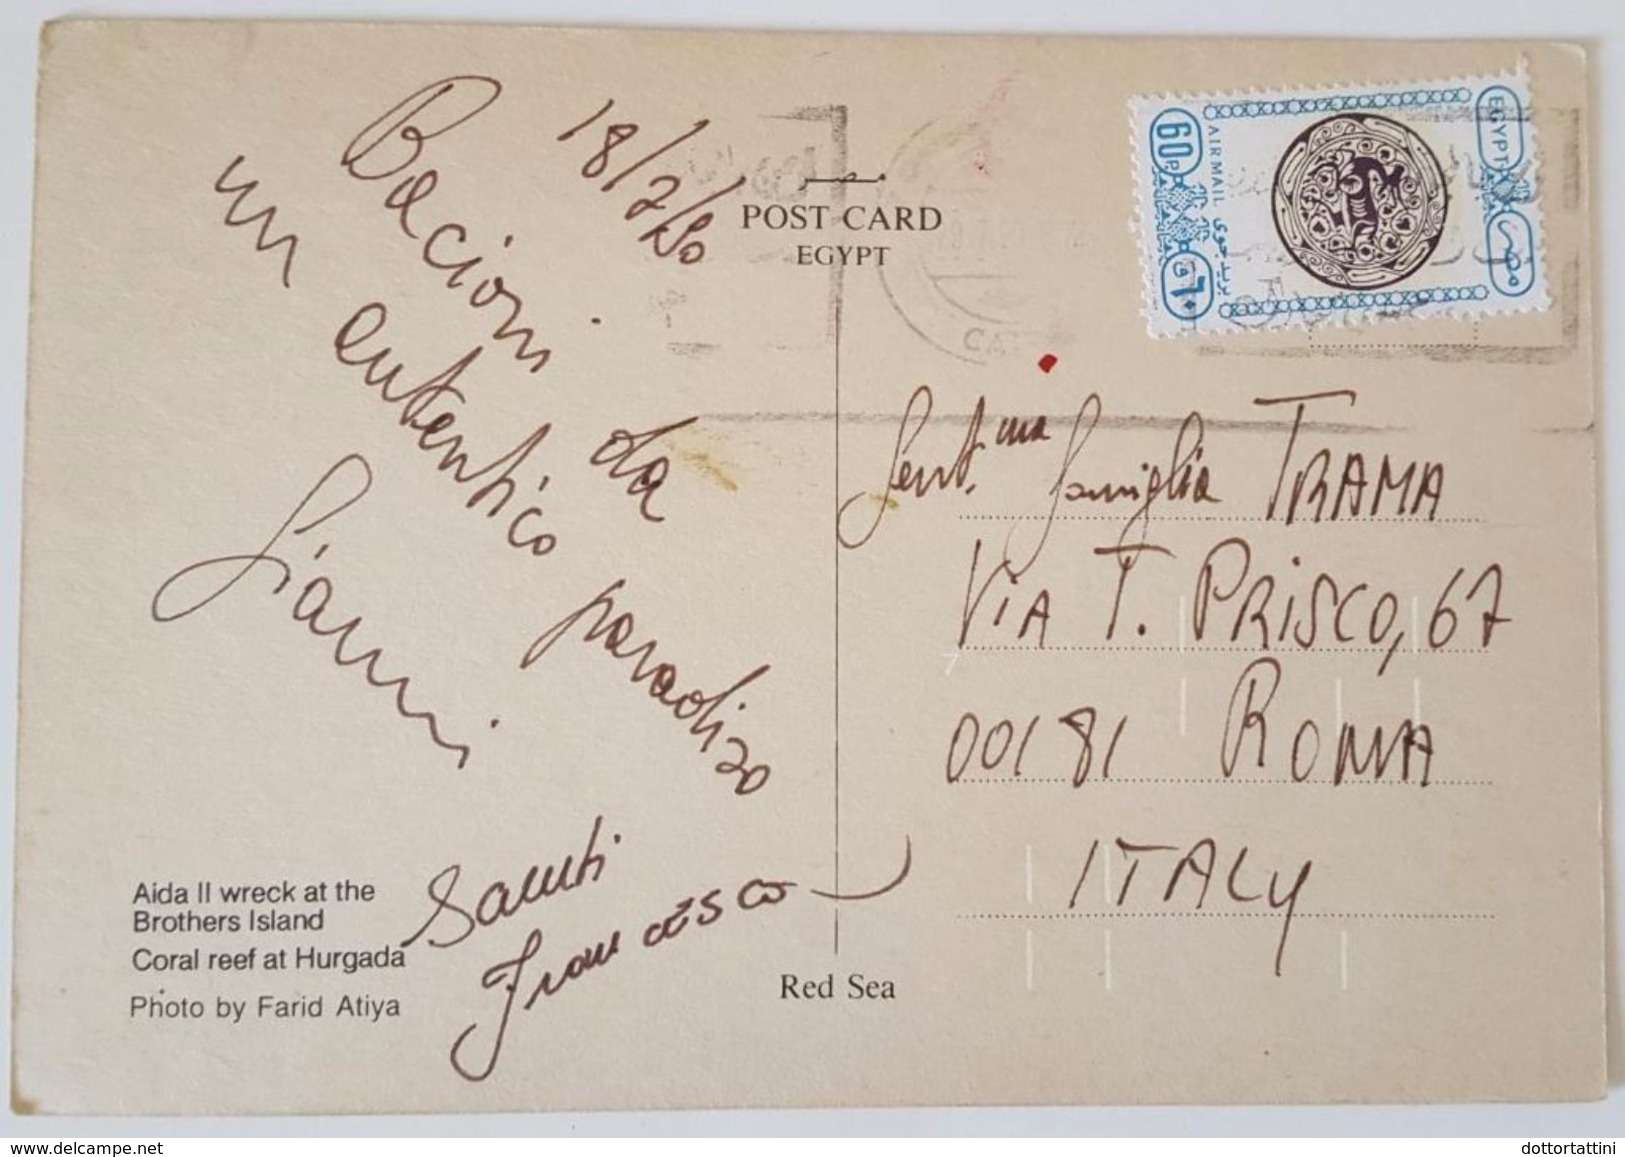 18/7/90
Bacioni da
un autentico paradiso
Gianni
Santi
Francesco
Aida II wreck at the
Brothers Island
Coral reef at Hurgada
Photo by Farid Atiya
مصر
POST CARD
EGYPT
Red Sea
EGYPT مصر
AIR MAIL بريد جوى
60P
٦٠
CA
Gent.ma famiglia TRAMA
VIA T. PRISCO, 67
00181 ROMA
ITALY
dottortattini